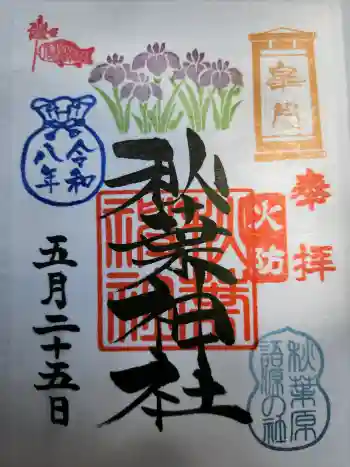 奉拝
火防
秋葉原
語源の社
秋葉神社
令和
八年
五月二十五日